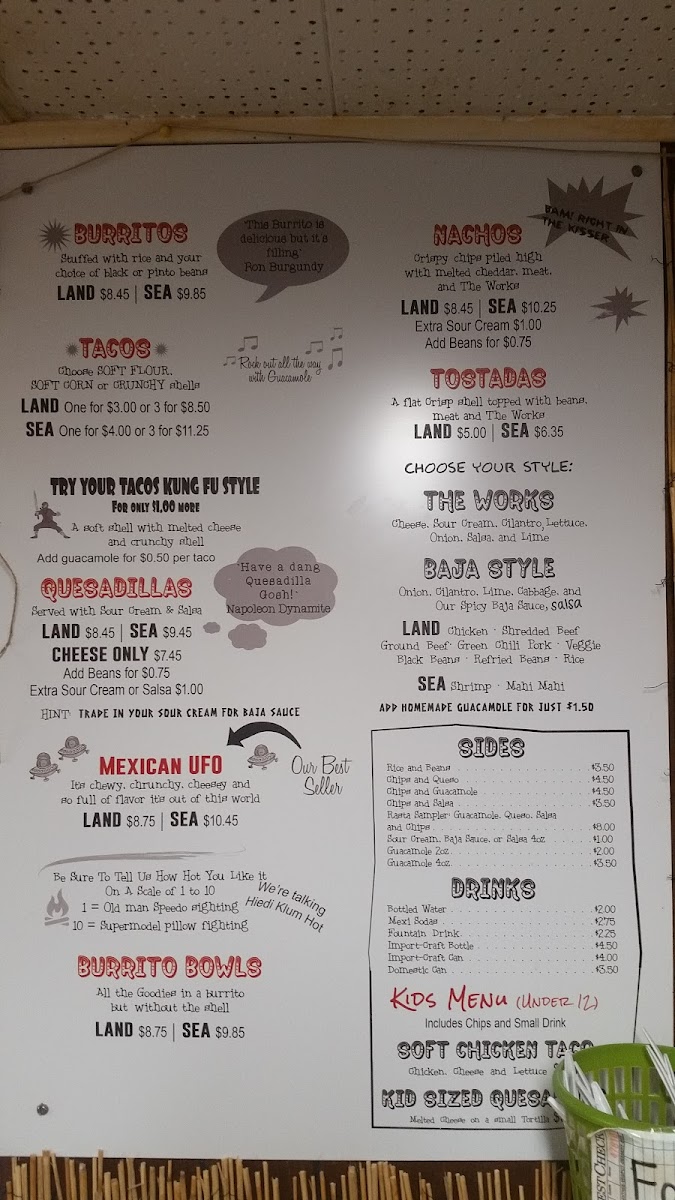 BURRITOS
Stuffed with rice and your
choice of black or pinto beans
LAND $8.45 | SEA $9.85
"This Burrito is
delicious but it's
filling"
Ron Burgundy
TACOS
Choose SOFT FLOUR,
SOFT CORN or CRUNCHY shells
LAND One for $3.00 or 3 for $8.50
SEA One for $4.00 or 3 for $11.25
Rock out all the way
with Guacamole
TRY YOUR TACOS KUNG FU STYLE
FOR ONLY $1.00 MORE
A soft shell with melted cheese
and crunchy shell
Add guacamole for $0.50 per taco
QUESADILLAS
Served with Sour Cream & Salsa
LAND $8.45 | SEA $9.45
CHEESE ONLY $7.45
Add Beans for $0.75
Extra Sour Cream or Salsa $1.00
HINT: TRADE IN YOUR SOUR CREAM FOR BAJA SAUCE
"Have a dang
Quesadilla
Gosh!"
Napoleon Dynamite
MEXICAN UFO
Its chewy, chrunchy, cheesey and
so full of flavor its out of this world
LAND $8.75 | SEA $10.45
Our Best
Seller
Be Sure To Tell Us How Hot You Like it
On A Scale of 1 to 10
1 = Old man Speedo sighting
10 = Supermodel pillow fighting
We're talking
Hiedi Klum Hot
BURRITO BOWLS
All the Goodies in a burrito
but without the shell
LAND $8.75 | SEA $9.85
BAM! RIGHT IN
THE KISSER
NACHOS
Crispy chips piled high
with melted cheddar, meat,
and The Works
LAND $8.45 | SEA $10.25
Extra Sour Cream $1.00
Add Beans for $0.75
TOSTADAS
A flat Crisp shell topped with beans,
meat and The Works
LAND $5.00 | SEA $6.35
CHOOSE YOUR STYLE:
THE WORKS
Cheese, Sour Cream, Cilantro, Lettuce,
Onion, Salsa, and Lime
BAJA STYLE
Onion, Cilantro, Lime, Cabbage, and
Our Spicy Baja Sauce, salsa
LAND Chicken · Shredded Beef
Ground Beef · Green Chili Pork · Veggie
Black Beans · Refried Beans · Rice
SEA Shrimp · Mahi Mahi
ADD HOMEMADE GUACAMOLE FOR JUST $1.50
SIDES
Rice and Beans $3.50
Chips and Queso $4.50
Chips and Guacamole $4.50
Chips and Salsa $3.50
Rasta Sampler: Guacamole, Queso, Salsa
and Chips $8.00
Sour Cream, Baja Sauce, or Salsa 4oz $1.00
Guacamole 2oz $2.00
Guacamole 4oz $3.50
DRINKS
Bottled Water $2.00
Mexi Sodas $2.75
Fountain Drink $2.25
Import-Craft Bottle $4.50
Import-Craft Can $4.00
Domestic Can $3.50
KIDS MENU (UNDER 12)
Includes Chips and Small Drink
SOFT CHICKEN TACO
Chicken, Cheese and Lettuce
KID SIZED
Melted Cheese on a small Tortilla